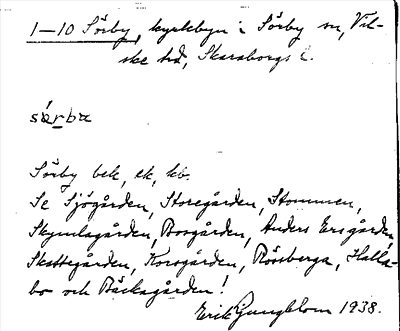 1—10 Sörby, kyrkbyn i Sörby sn, Vil-
ske hd, Skaraborgs l.
sárba
Sörby bek, ek, kb.
Se Sjögården, Storegården, Stommen,
Skymlagården, Bosgården, Anders Ersgården,
Skattegården, Korsgården, Rössberga, Halla-
bo och Bäckagården!
Erik Ljungblom 1938.